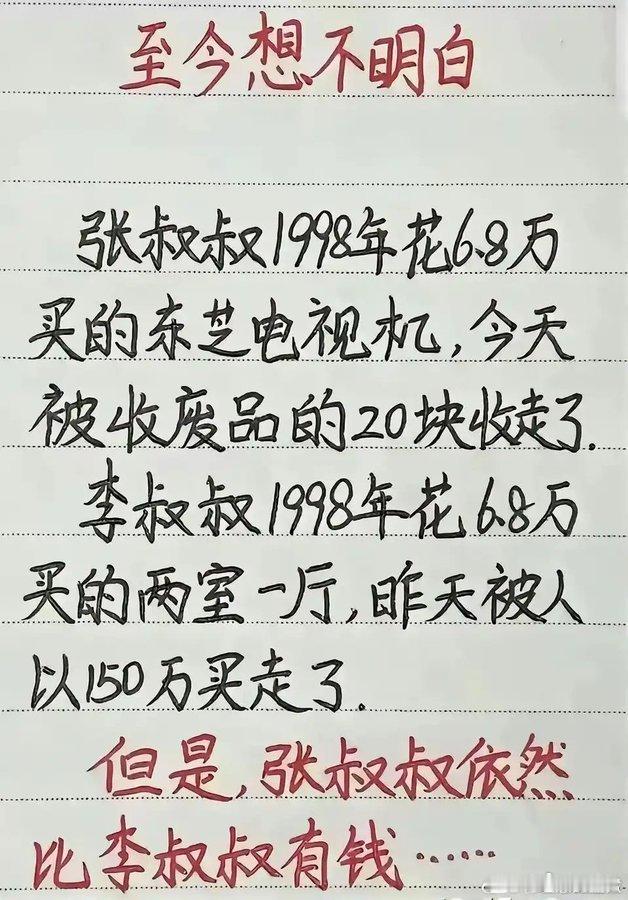 至今想不明白
张叔叔1998年花6.8万
买的东芝电视机,今天
被收废品的20块收走了.
李叔叔1998年花6.8万
买的两室一厅,昨天被人
以150万买走了.
但是,张叔叔依然
比李叔叔有钱……